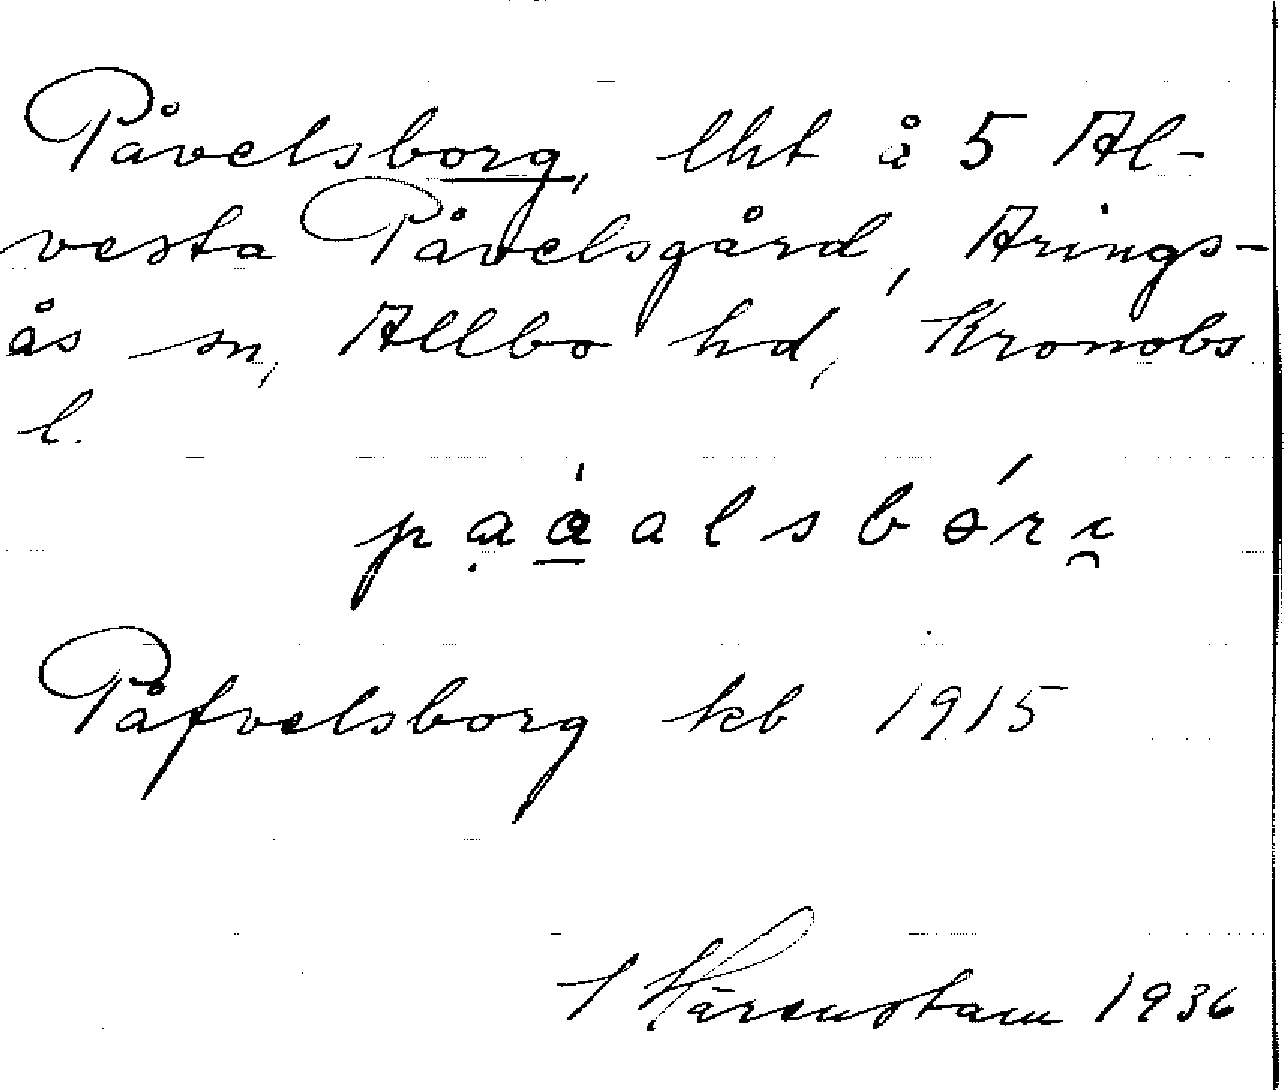 Påvelsborg, lht å 5 Al-
vesta Påvelsgård, Arings-
ås sn, Allbo hd, Kronobs
l.
Påfvelsborg kb 1915
Härenstam 1936